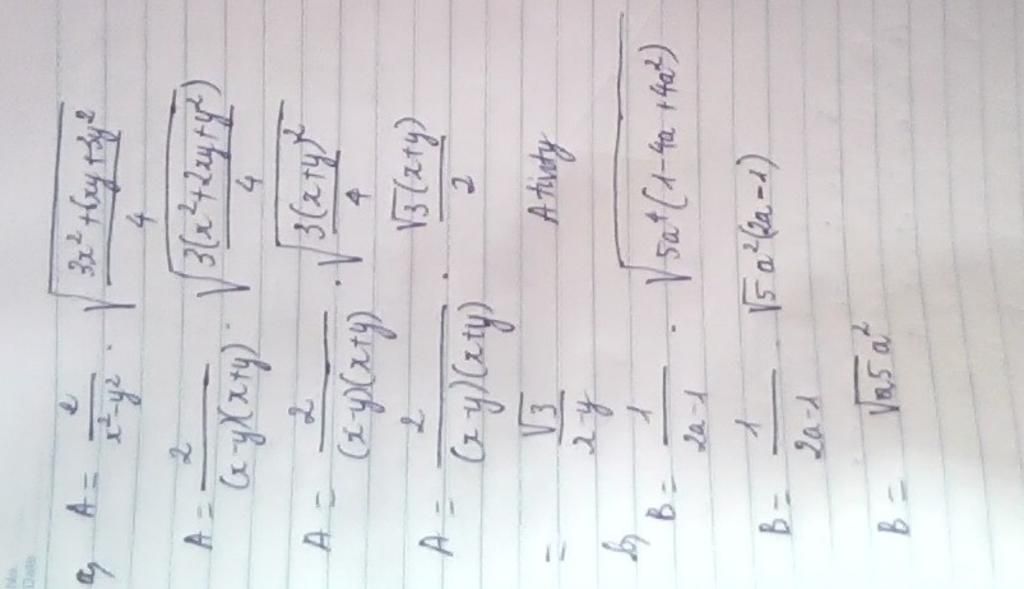 a, A = 2/(x²-y²) · √((3x²+6xy+3y²)/4)
A = 2/((x-y)(x+y)) · √(3(x²+2xy+y²)/4)
A = 2/((x-y)(x+y)) · √(3(x+y)²/4)
A = 2/((x-y)(x+y)) · √3(x+y)/2
= √3/(x-y)
b, B = 1/(2a-1) · √(5a⁴(1-4a+4a²))
B = 1/(2a-1) √5a²(2a-1)
B = a²